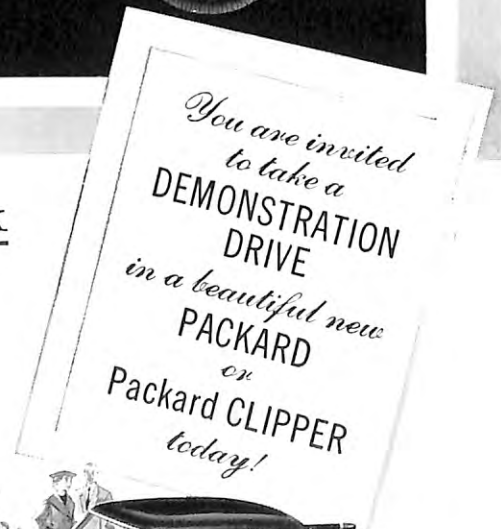 You are invited
to take a
DEMONSTRATION
DRIVE
in a beautiful new
PACKARD
or
Packard CLIPPER
today!